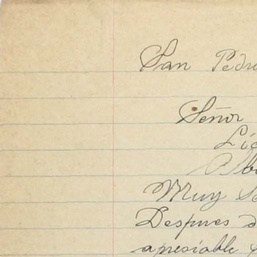 San Pedro
Señor
Lic
Muy Se
Despues d
apresiable